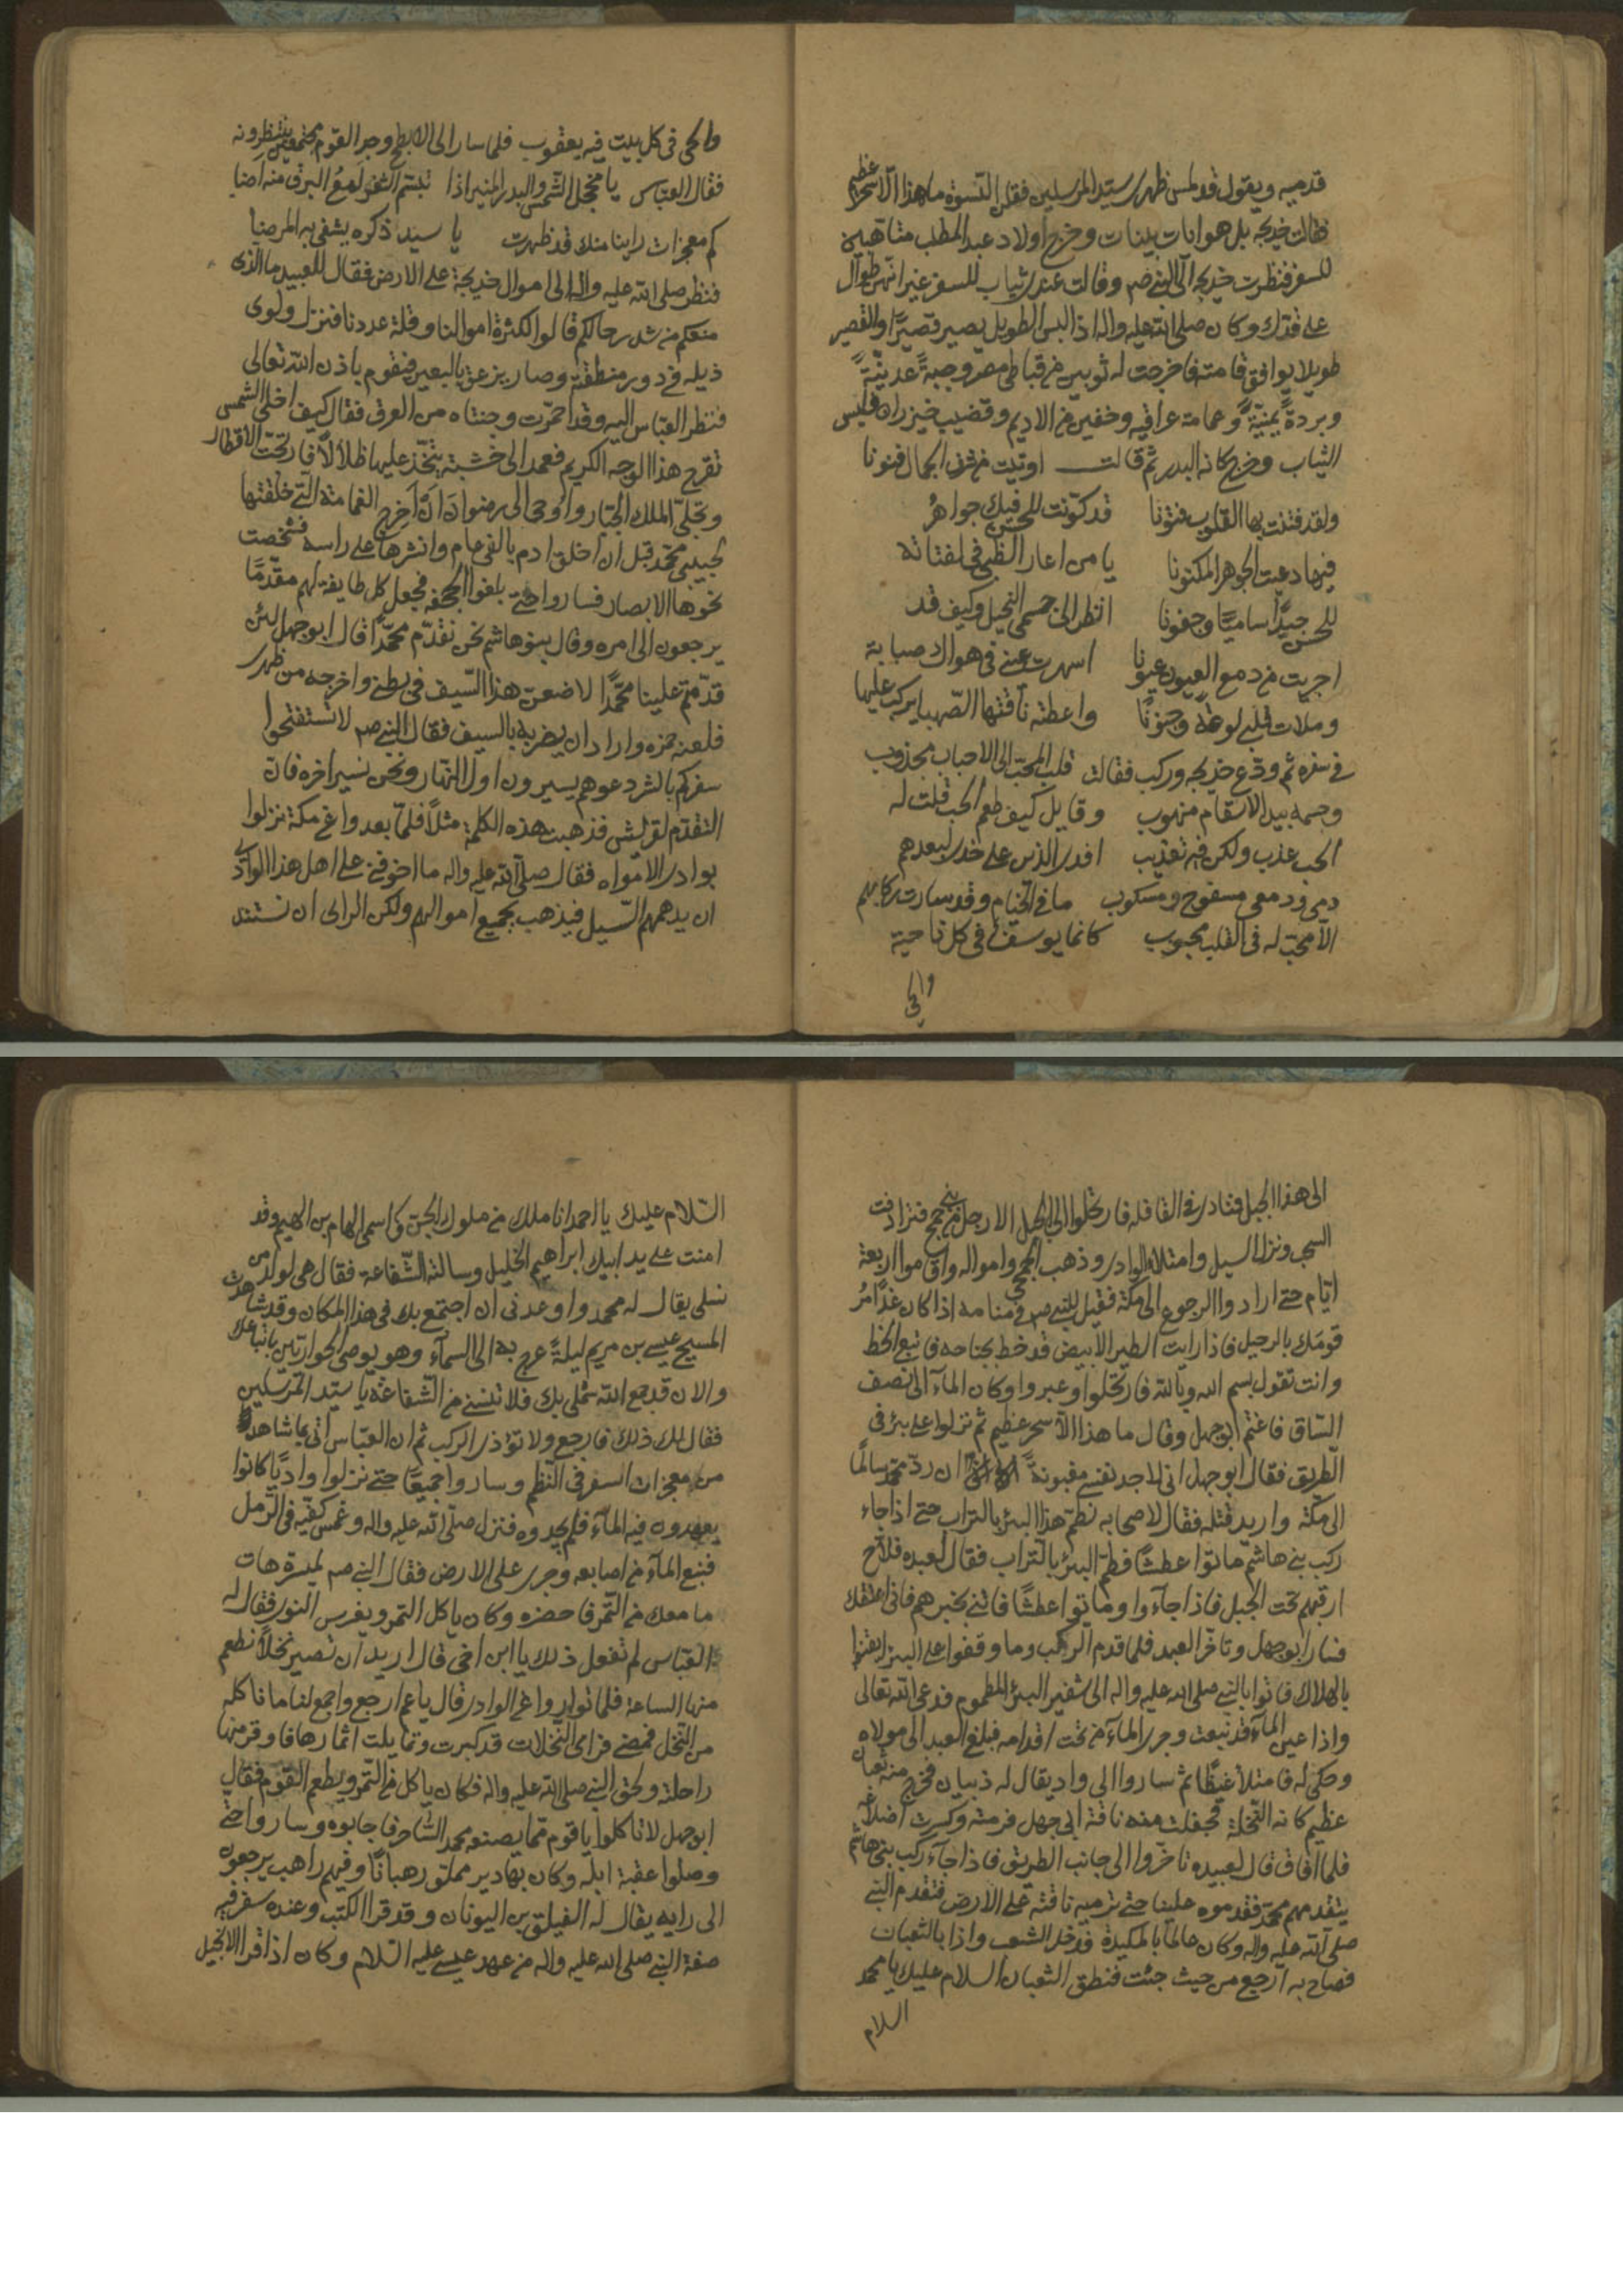 قدميه ويقول قد لمس ظهر سيد المرسلين فقلن النسوة ما هذا الا سحر عظيم
فقالت خديجه بل هو ايات بينات وخرج اولاد عبد المطلب متاهبين
للسفر فنظرت خديجه الى النبي صم وقالت عندك ثياب للسفر غير انهن طوال
على قدك وكان صلى الله عليه واله اذا لبس الطويل يصير قصيرا والقصير
طويلا يوافق قامته فاخرجت له ثوبين من قباطي مصر وجبة عدنية
وبردة يمنية وعمامة عراقيه وخفين من الاديم وقضيب خيزران فلبس
الثياب وخرج كانه البدر ثم قالت اوتيت من شرف الجمال فنونا
ولقد فتنت بها القلوب فتونا قد كونت للحسن فيك جواهر
فيها دعيت الجوهر المكنونا يا من اعار الظبي في لفتاته
للحسن جيدا ساميا وجفونا انظر الى جسمي النحيل وكيف قد
اجريت من دمع العيون عيونا اسهرت عيني في هواك صبابة
وملات قلبي لوعة وجنونا واعطته ناقتها الصهبا يركب عليها
في سفره ثم ودع خديجه وركب فقالت قلب المحب الى الاحباب مجذوب
وجسمه بيد الاسقام منهوب وقايل كيف طعم الحب قلت له
الحب عذب ولكن فيه تعذيب افدى الذين على خدى لبعدهم
دمى ودمعى مسفوح ومسكوب ما في الخيام وقد سارت ركابهم
الا محب له في القلب محبوب كانما يوسف في كل ناحية
والحى
والحى في كل بيت فيه يعقوب فلما سار الى الابطح وجد القوم مجتمعين ينتظرونه
فقال العباس يا مخجل الشمس والبدر المنير اذا تبسم الثغر لمع البرق منه اضا
كم معجزات راينا منك قد ظهرت يا سيد ذكره يشفى به المرضا
فنظر صلى الله عليه واله الى اموال خديجة على الارض فقال للعبيد ما الذى
منعكم من شد رحالكم قالوا لكثرة اموالنا وقلة عددنا فنزل ولوى
ذيله في دور منطقته وصار يزعق بالبعير فيقوم باذن الله تعالى
فنظر العباس اليه وقد احمرت وجنتاه من العرق فقال كيف اخلى الشمس
تقرح هذا الوجه الكريم فعمد الى خشبة يتخذ عليها ظلالا فارتجت الاقطار
وتجلى الملك الجبار واوحى الى رضوان ان اخرج الغمامة التي خلقتها
لحبيبي محمد قبل ان اخلق ادم بالفي عام وانشرها على راسه فشخصت
نحوها الابصار فساروا حتى بلغوا الجحفه فجعل كل طايفة لهم مقدما
يرجعون الى امره وقال بنو هاشم نحن نقدم محمدا قال ابو جهل لئن
قدمتم علينا محمدا لاضعن هذا السيف في بطني واخرجه من ظهرى
فلعنه حمزه واراد ان يضربه بالسيف فقال النبي صم لا تستفتحوا
سفركم بالشر دعوهم يسيرون اول النهار ونحن نسير اخره فان
التقدم لقريش فذهبت هذه الكلمة مثلا فلما بعدوا عن مكة نزلوا
بوادى الامواه فقال صلى الله عليه واله ما اخوفني على اهل هذا الوادى
ان يدهمهم السيل فيذهب بجميع اموالهم ولكن الراى ان نستند
الى هذا الجبل فنادى في القافله فارتحلوا الى الجبل الا رجل من بني جمح فترادفت
السحب ونزل السيل وامتلاء الوادى وذهب الجمحي وامواله واقاموا اربعة
ايام حتى ارادوا الرجوع الى مكة فقيل للنبي صم في منامه اذا كان غدا مر
قومك بالرحيل فاذا رايت الطير الابيض قد خط بجناحه فاتبع الخط
وانت تقول بسم الله وبالله فارتحلوا وعبروا وكان الماء الى نصف
الساق فاغتم ابو جهل وقال ما هذا الا سحر عظيم ثم نزلوا على بئر في
الطريق فقال ابو جهل اني لاجد نفسي مغبونة ان رد محمد سالما
الى مكة واريد قتله فقال لاصحابه نطم هذا البئر بالتراب حتى اذا جاء
ركب بني هاشم ماتوا عطشا فطم البئر بالتراب فقال لعبده فلاح
ارقبهم تحت الجبل فاذا جاءوا وماتوا عطشا فاتني بخبرهم فاني اعتقك
فسار ابو جهل وتاخر العبد فلما قدم الركب وما وقفوا على البئر ايقنوا
بالهلاك فاتوا بالنبي صلى الله عليه واله الى شفير البئر المطموم فدعى الله تعالى
واذا عين الماء قد نبعت وجرى الماء من تحت اقدامه فبلغ العبد الى مولاه
وحكى له فامتلأ غيظا ثم ساروا الى واد يقال له ذبيان فخرج منه ثعبان
عظيم كانه النخلة فجفلت منه ناقة ابي جهل فرمته وكسرت اضلاعه
فلما افاق قال لعبيده تاخروا الى جانب الطريق فاذا جاء ركب بني هاشم
يتقدمهم محمد فقدموه علينا حتى ترميه ناقته على الارض فتقدم النبي
صلى الله عليه واله وكان عالما بالمكيدة فدخل الشعب واذا بالثعبان
فصاح به ارجع من حيث جئت فنطق الثعبان السلام عليك يا محمد
السلام
السلام عليك يا احمد انا ملك من ملوك الجن واسمى الهام بن الهيم وقد
امنت على يد ابيك ابراهيم الخليل وسالته الشفاعة فقال هى لولد من
نسلى يقال له محمد واوعدنى ان اجتمع بك فى هذا المكان وقد شاهدت
المسيح عيسى بن مريم ليلة عرج به الى السماء وهو يوصى الحواريين باتباعك
والان قد جمع الله شملى بك فلا تنسنى من الشفاعة يا سيد المرسلين
فقال لك ذلك فارجع ولا تؤذ الركب ثم ان العباس اتى بما شاهده
من معجزات السفر في النظم وساروا جميعا حتى نزلوا واديا كانوا
يعهدون فيه الماء فلم يجدوه فنزل صلى الله عليه واله وغمس كفيه في الرمل
فنبع الماء من اصابعه وجرى على الارض فقال النبي صم لميسرة هات
ما معك من التمر فاحضره وكان ياكل التمر ويغرس النوى فقال له
العباس لم تفعل ذلك يا ابن اخي قال اريد ان تصير نخلا نطعم
منها الساعة فلما تواروا عن الوادى قال يا عم ارجع واجمع لنا ما ناكله
من النخل فمضى فراى النخلات قد كبرت وتمايلت اثمارها فاوقر منها
راحلته ولحق النبي صلى الله عليه واله فكان ياكل من التمر ويطعم القوم فقال
ابو جهل لا تاكلوا يا قوم مما يصنعه محمد الساحر فاجابوه وساروا حتى
وصلوا عقبة ايله وكان بها دير مملو رهبانا وفيهم راهب يرجعون
الى رايه يقال له الفيلق بن اليونان وقد قرا الكتب وعنده سفر فيه
صفة النبي صلى الله عليه واله من عهد عيسى عليه السلام وكان اذا قرا الانجيل